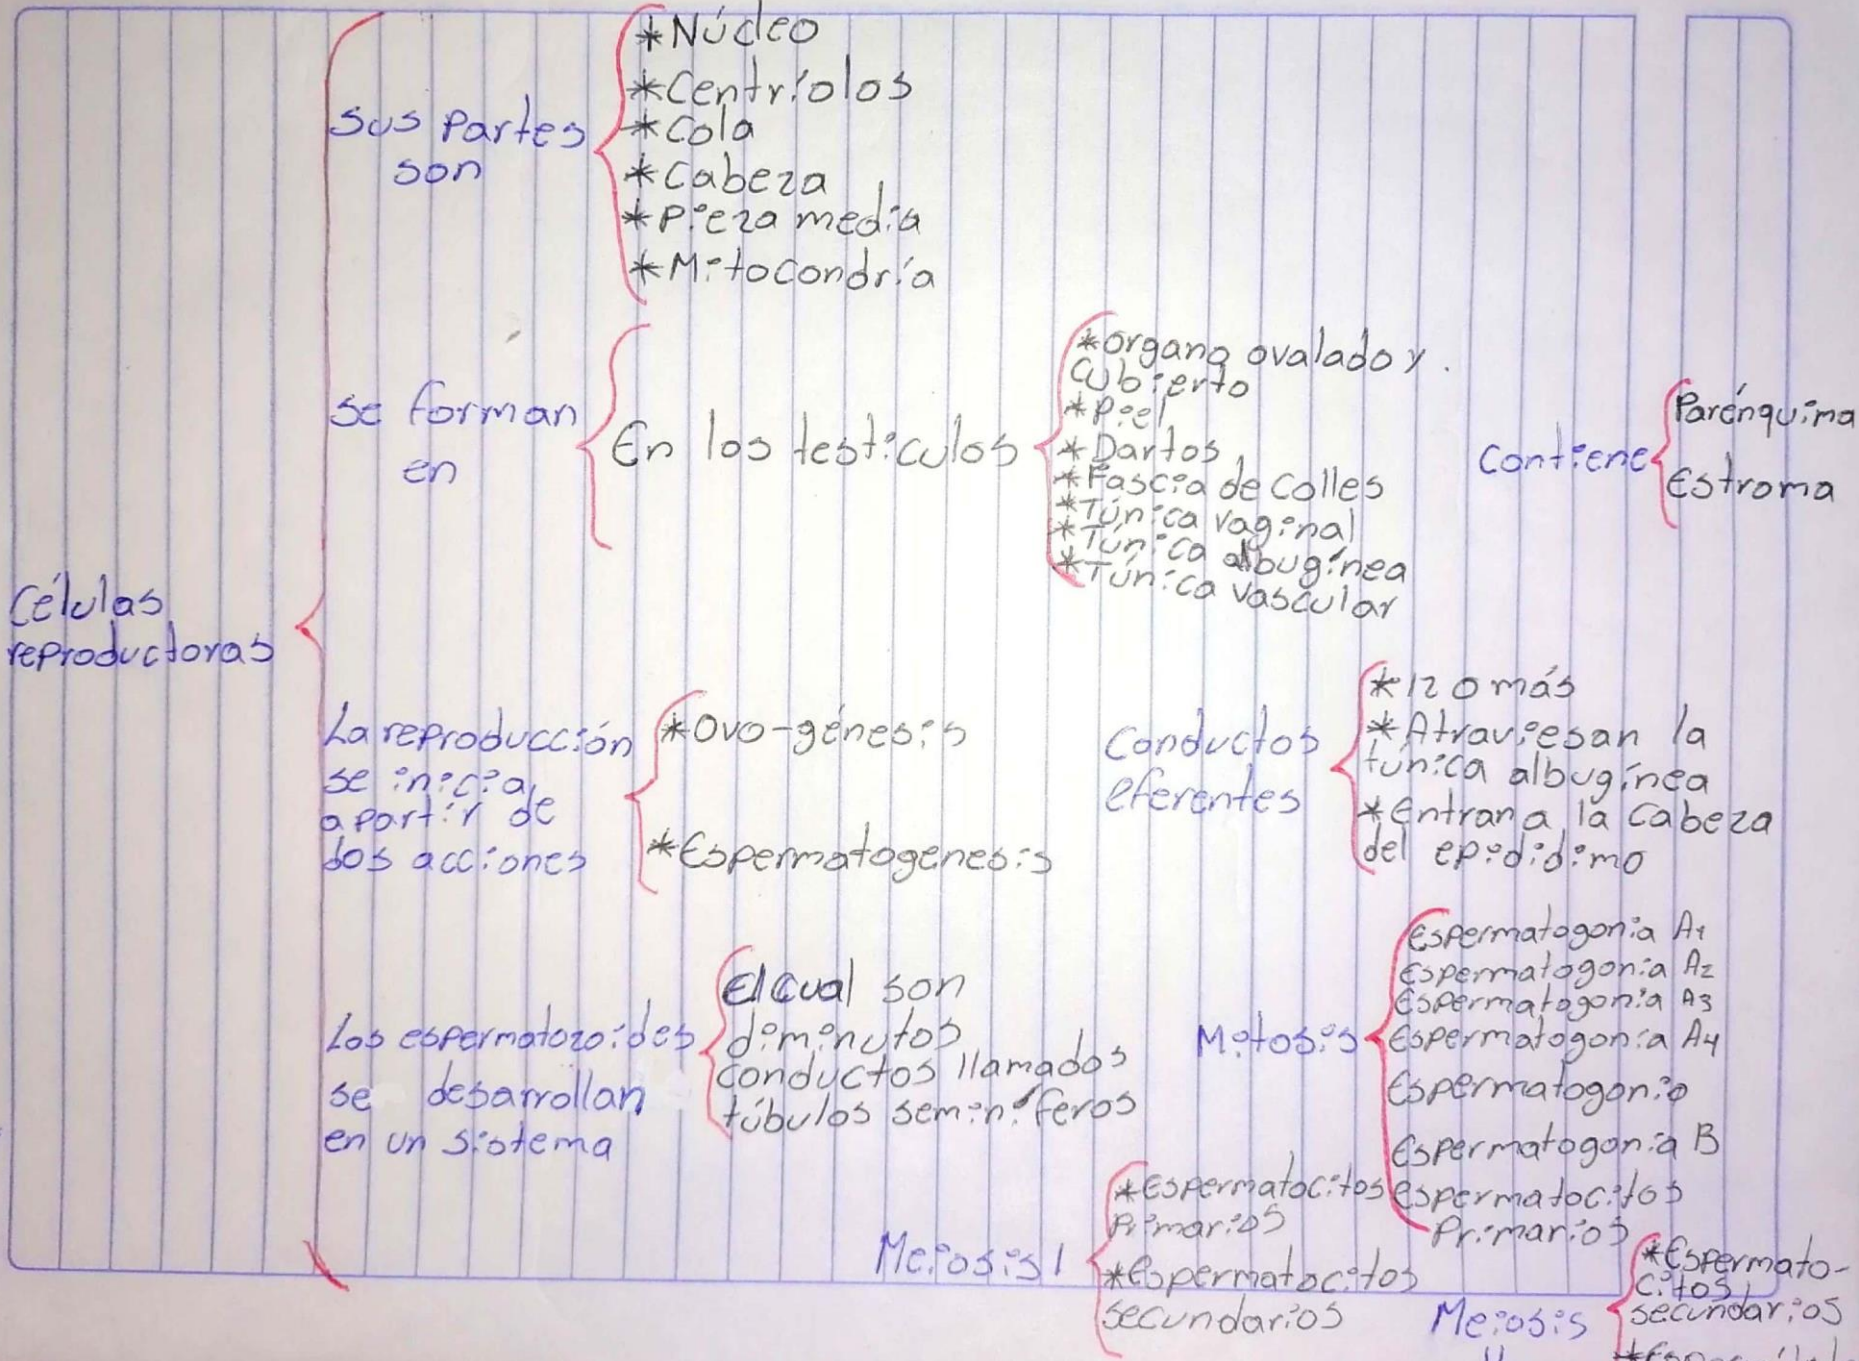 Células
reproductoras
Sus Partes
son
*Núcleo
*Centríolos
*Cola
*Cabeza
*Pieza media
*Mitocondría
se forman
en
En los testiculos
*organo ovalado y.
Cubierto
*Piel
*Dartos
*Fascia de Colles
*Túnica vaginal
*Túnica albugínea
*Túnica vascular
Contiene
Parénquima
Estroma
La reproducción
se inicia
apartir de
dos acciones
*Ovo-génesis
*Espermatogenesis
Conductos
eferentes
*12 o más
*Atraviesan la
túnica albugínea
*entran a la Cabeza
del epididimo
Los espermatozoides
se desarrollan
en un sistema
El cual son
diminutos
conductos llamados
túbulos seminíferos
Mitosis
Espermatogonia A1
Espermatogonia A2
Espermatogonia A3
Espermatogonia A4
Espermatogonio
Espermatogonia B
espermatocitos
Primarios
Meiosis I
*Espermatocitos
Primarios
*Espermatocitos
secundarios
Meiosis
*Espermato-
citos
secundarios